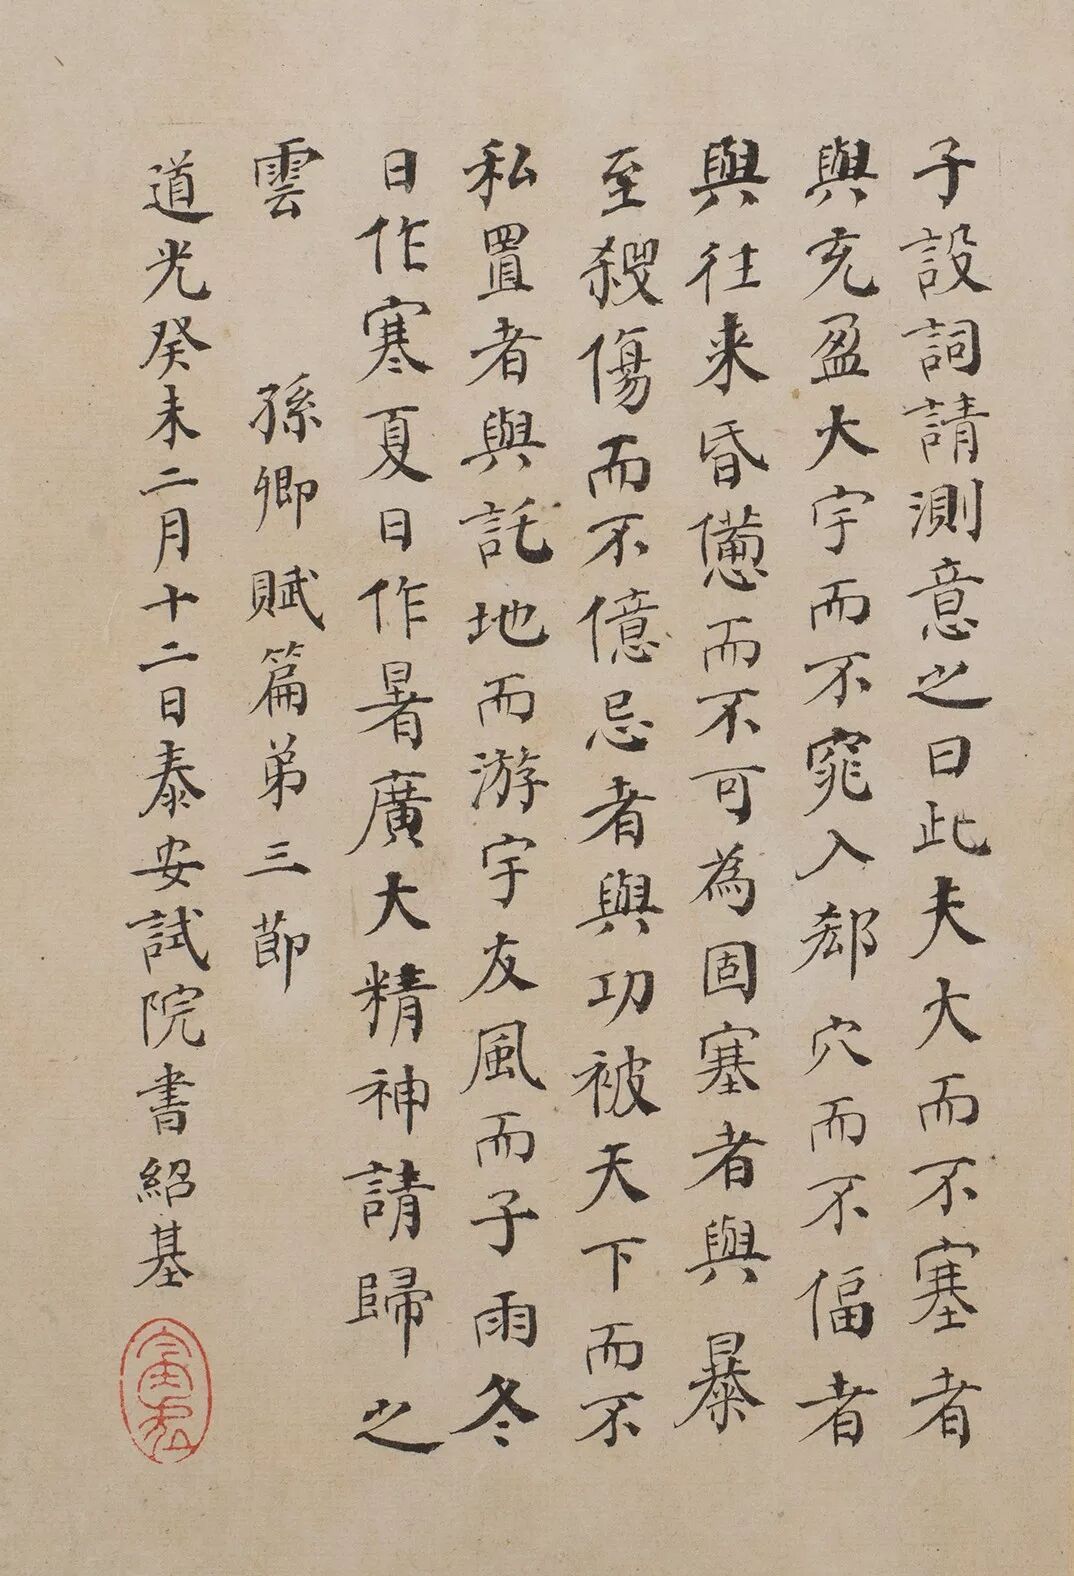 子設詞請測意之曰此夫大而不塞者
與充盈大宇而不窕入郄穴而不偪者
與往來昏憊而不可為固塞者與暴
至殺傷而不億忌者與功被天下而不
私置者與託地而游宇友風而子雨冬
日作寒夏日作暑廣大精神請歸之
雲　孫卿賦篇弟三節
道光癸未二月十二日泰安試院書紹基